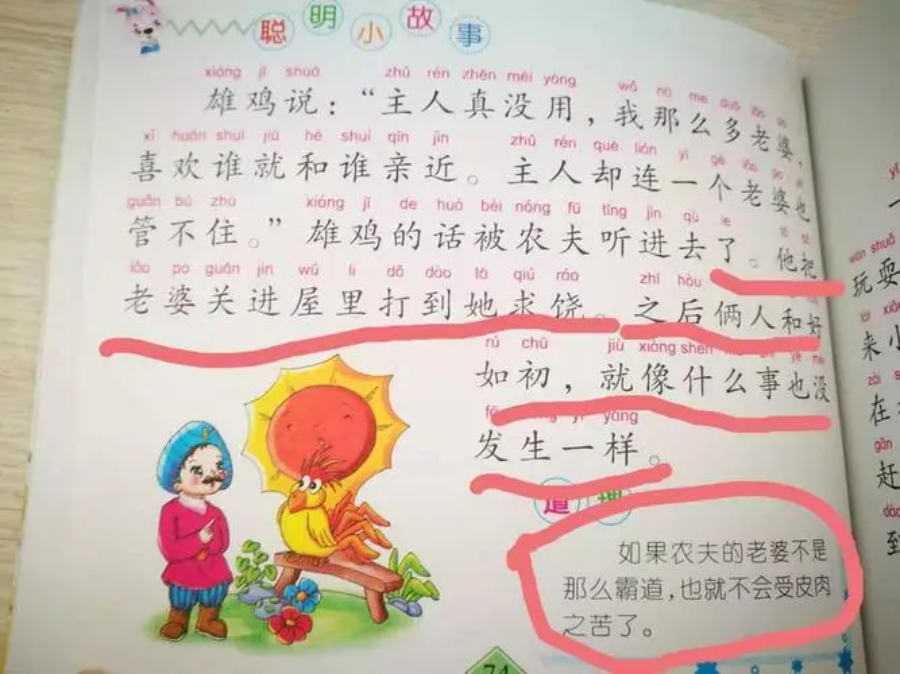 聪明小故事
xióng jī shuō zhǔ rén zhēn méi yòng wǒ nà me duō lǎo po
雄鸡说：“主人真没用，我那么多老婆，
xǐ huān shuí jiù hé shuí qīn jìn zhǔ rén què lián yí gè lǎo po
喜欢谁就和谁亲近。主人却连一个老婆也
guǎn bú zhù xióng jī de huà bèi nóng fū tīng jìn qù le
管不住。”雄鸡的话被农夫听进去了。他把
lǎo po guān jìn wū lǐ dǎ dào tā qiú ráo zhī hòu
老婆关进屋里打到她求饶。之后俩人和好
rú chū jiù xiàng shén
如初，就像什么事也没
yàng
发生一样。
道理
如果农夫的老婆不是
那么霸道，也就不会受皮肉
之苦了。
74
一
wán shuǎ
玩耍
来小
zài
在
gǎn
赶
到